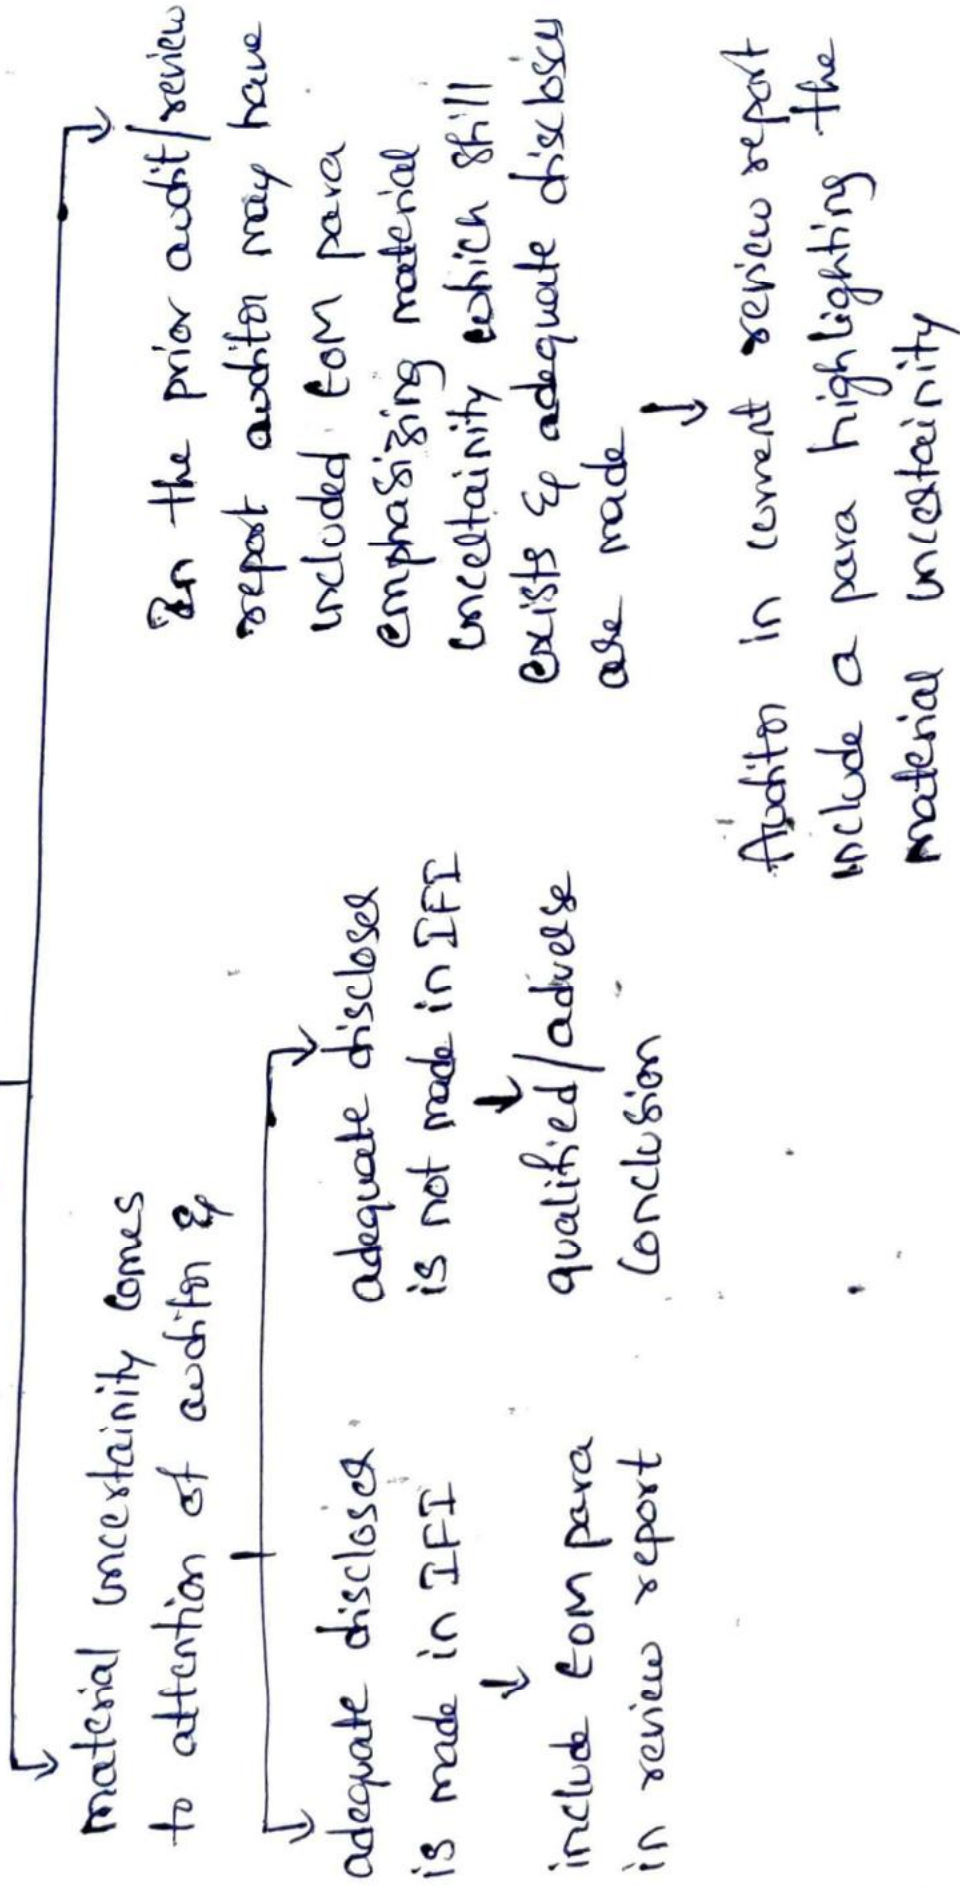 material uncertainity comes
to attention of auditor &
adequate discloser
is made in IFI
include EOM para
in review report
adequate discloser
is not made in IFI
qualified/adverse
Conclusion
In the prior audit/review
report auditor may have
included EOM para
emphasizing material
uncertainity which still
exists & adequate disclosu
are made
Auditor in current review report
include a para highlighting the
material uncertainity